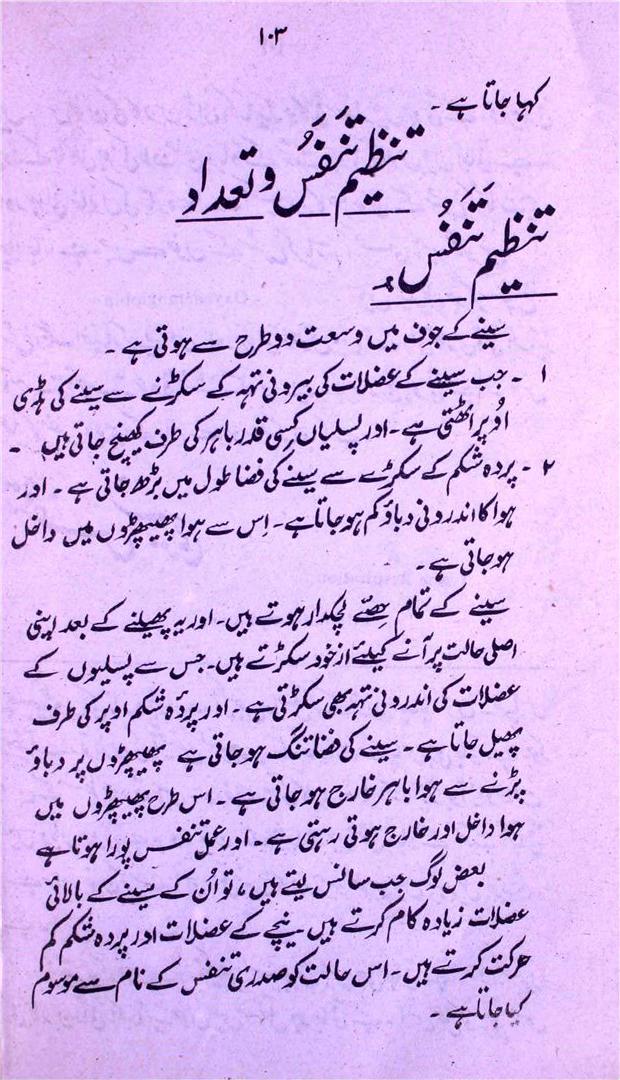 ۱۰۳
کہا جاتا ہے ۔
تنظیم تَنَفُّس و تعداد
تنظیم تَنَفُّس :
سینے کے جوف میں وسعت دو طرح سے ہوتی ہے ۔
۱ ۔ جب سینے کے عضلات کی بیرونی تہہ کے سکڑنے سے سینے کی ہڈی
اوُپر اٹھتی ہے ۔ اور پسلیاں کسِی قدر باہر کی طرف کھینچ جاتی ہیں ۔
۲ ۔ پردہ شکم کے سکڑے سے سینے کی فضا طول میں بڑھ جاتی ہے ۔ اور
ہوا کا اندرونی دباؤ کم ہو جاتا ہے ۔ اِس سے ہوا پھیپھڑوں میں داخل
ہو جاتی ہے ۔
سینے کے تمام حصّے لچکدار ہوتے ہیں ۔ اور یہ پھیلنے کے بعد اپنی
اصلی حالت پر آنے کیلئے از خود سکڑتے ہیں ۔ جس سے پسلیوں کے
عضلات کی اندرونی تہہ بھی سکڑتی ہے ۔ اور پردٔہ شکم اوپر کی طرف
پھیل جاتا ہے ۔ سینے کی فضا تنگ ہو جاتی ہے پھیپھڑوں پر دباؤ
پڑنے سے ہوا باہر خارج ہو جاتی ہے ۔ اس طرح پھیپھڑوں میں
ہوا داخل اور خارج ہوتی رہتی ہے ۔ اور عمل تنفس پورا ہوتا ہے
بعض لوگ جب سانس لیتے ہیں ، تو اُن کے سینے کے بالائی
عضلات زیادہ کام کرتے ہیں نیچے کے عضلات اور پردہ شکم کم
حرکت کرتے ہیں ۔ اس حالت کو صدری تنفس کے نام سے موسوم
کیا جاتا ہے ۔